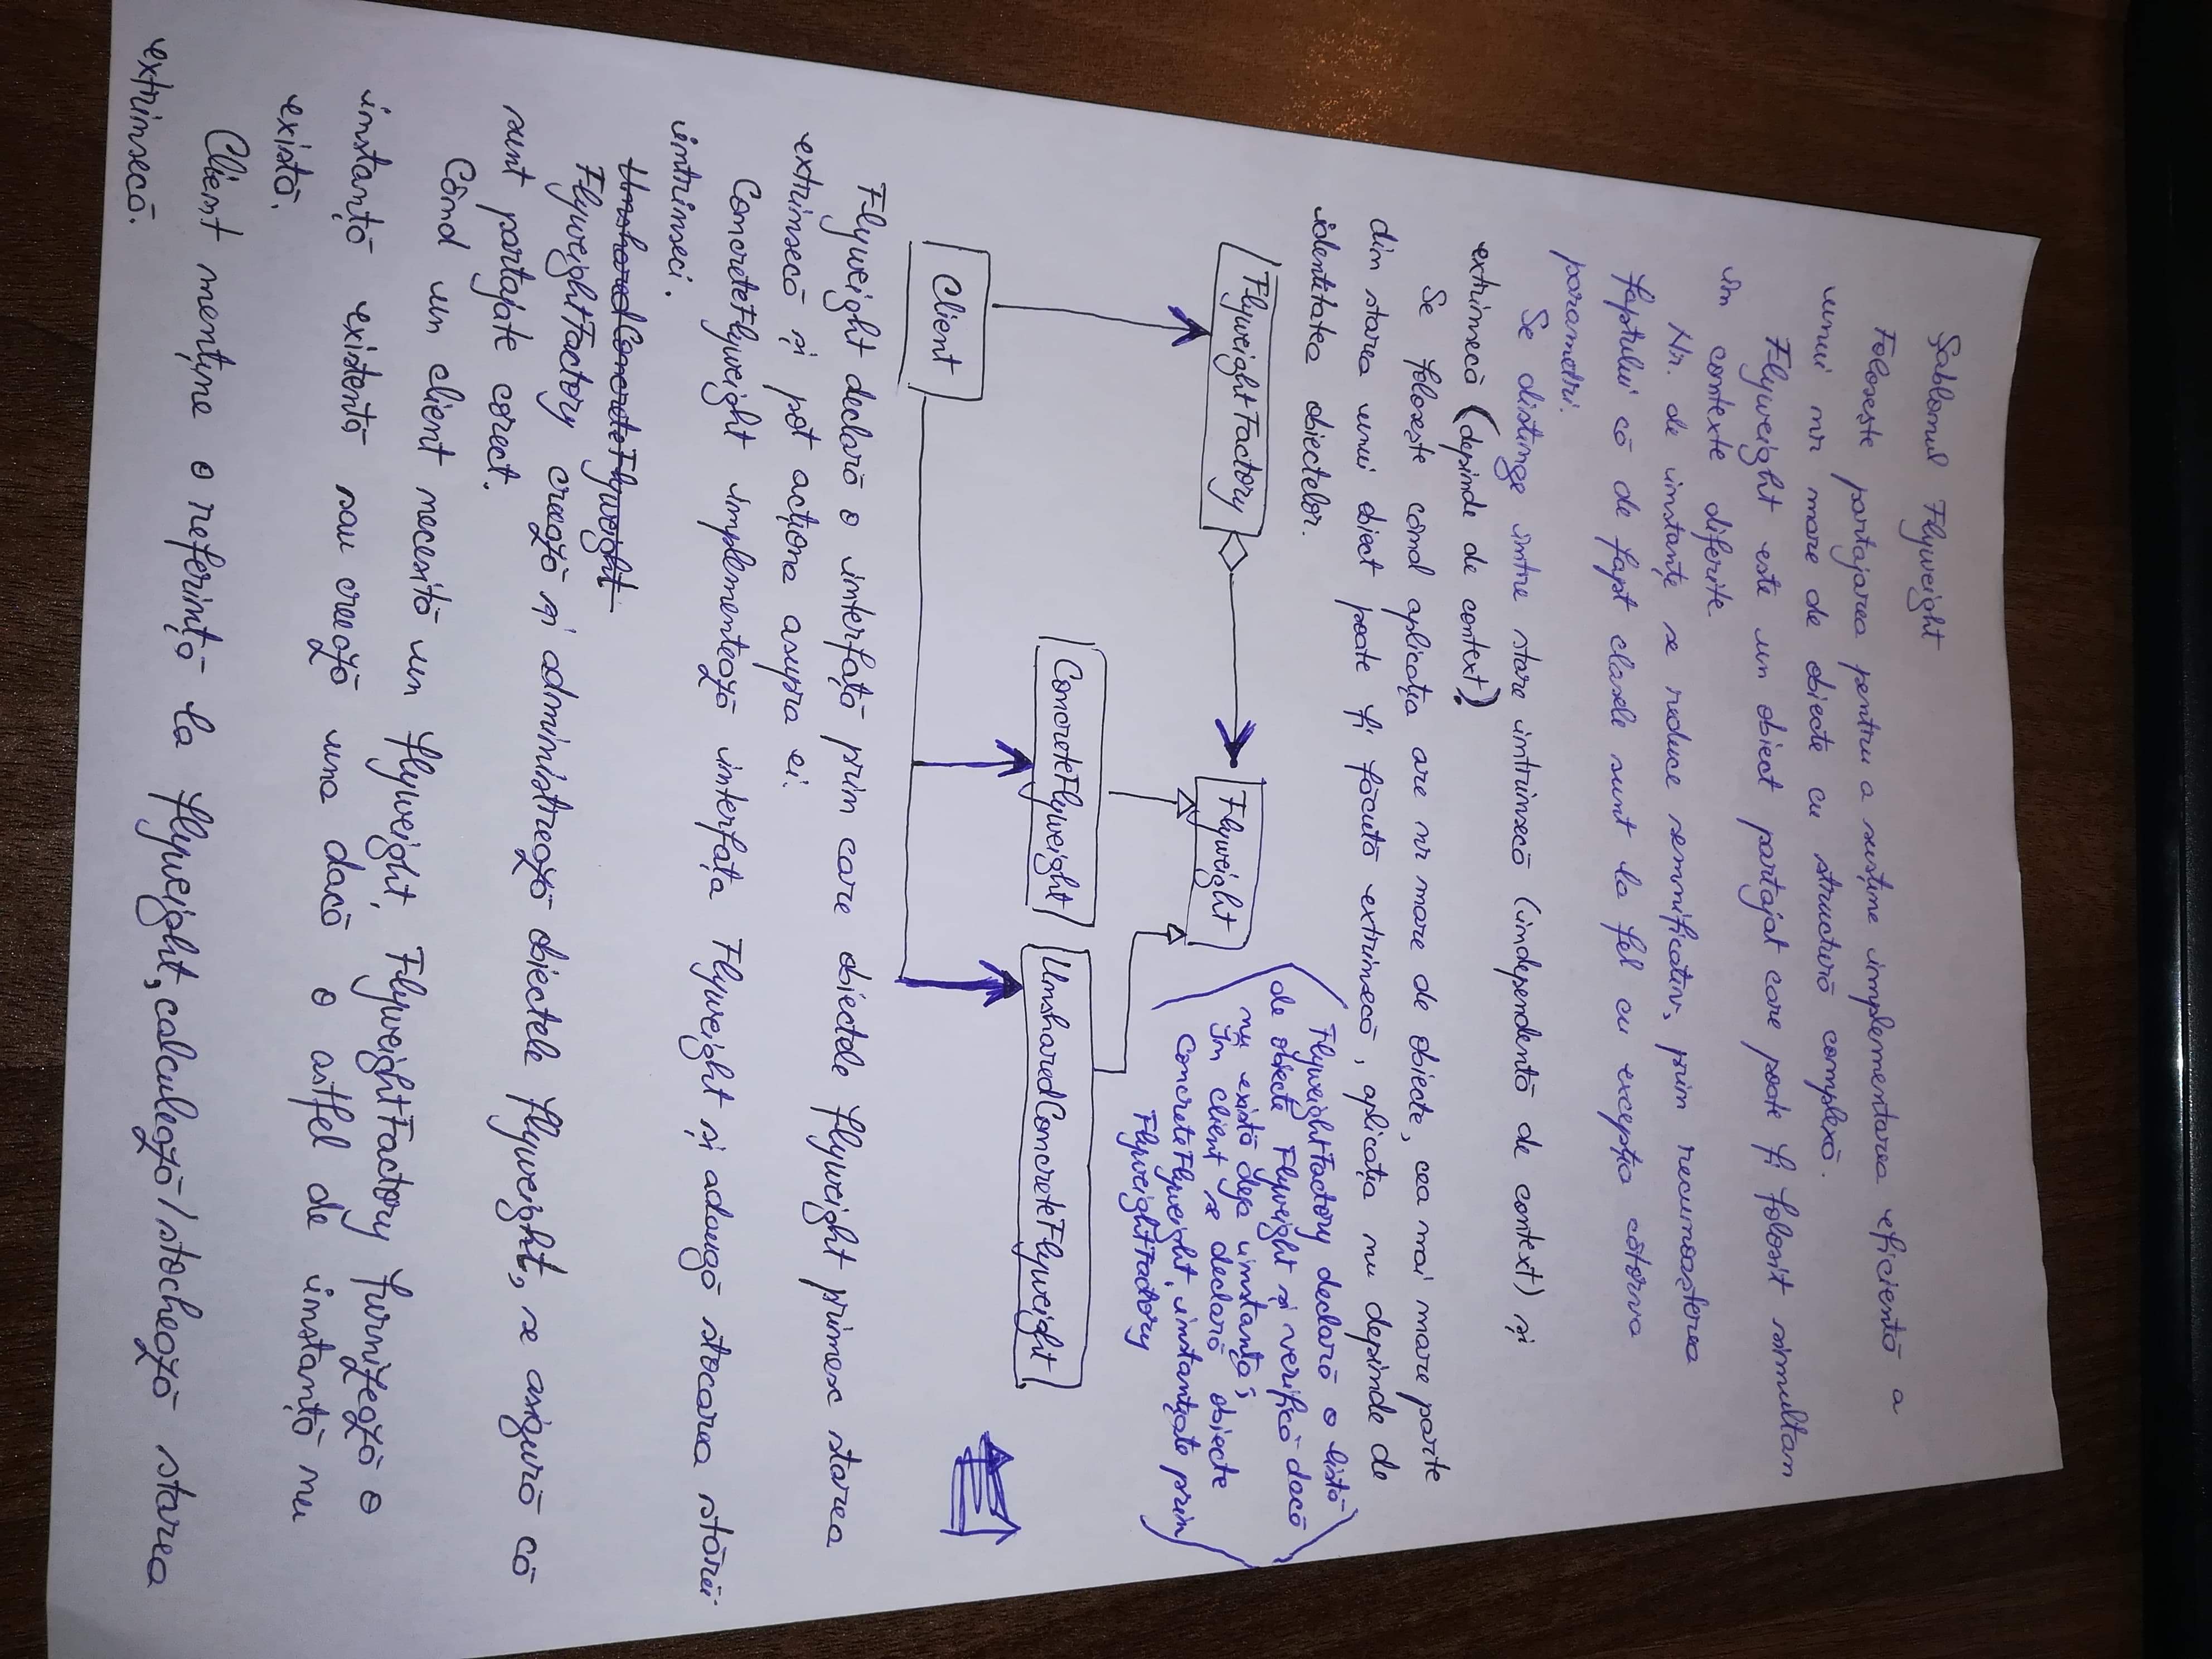 Șablonul Flyweight
Folosește partajarea pentru a susține implementarea eficientă a
unui nr mare de obiecte cu structură complexă.
Flyweight este un obiect partajat care poate fi folosit simultan
în contexte diferite.
Nr. de instanțe se reduce semnificativ, prin recunoașterea
faptului că de fapt clasele sunt la fel cu excepția câtorva
parametri.
Se distinge între stare intrinsecă (independentă de context) și
extrinsecă (depinde de context).
Se folosește când aplicația are nr mare de obiecte, cea mai mare parte
din starea unui obiect poate fi făcută extrinsecă, aplicația nu depinde de
identitatea obiectelor.
FlyweightFactory
Flyweight
FlyweightFactory declară o listă
de obiecte Flyweight și verifică dacă
nu există deja instanța;
În client se declară obiecte
ConcreteFlyweight, instanțiate prin
FlyweightFactory
Client
ConcreteFlyweight
UnsharedConcreteFlyweight
Flyweight declară o interfață prin care obiectele flyweight primesc starea
extrinsecă și pot acționa asupra ei.
ConcreteFlyweight implementează interfața Flyweight și adaugă stocarea stării
intrinseci.
UnsharedConcreteFlyweight
FlyweightFactory creează și administrează obiectele flyweight, se asigură că
sunt partajate corect.
Când un client necesită un flyweight, FlyweightFactory furnizează o
instanță existentă sau creează una dacă o astfel de instanță nu
există.
Client menține o referință la flyweight, calculează/stochează starea
extrinsecă.